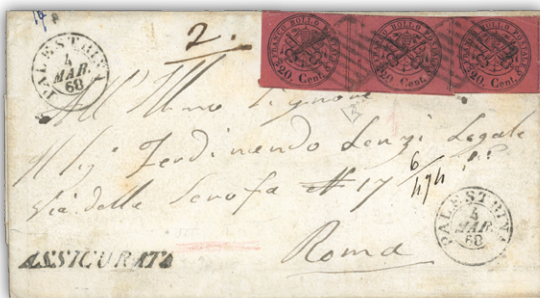 2.
PALESTRINA
4
MAR.
68
FRANCO BOLLO POSTALE
20 Cent.
FRANCO BOLLO POSTALE
20 Cent.
FRANCO BOLLO POSTALE
20 Cent.
All'Illmo Signore
Il Sig. Ferdinando Lenzi Legale
Via della Scrofa N 17
6/474
Roma
ASSICURATA
PALESTRINA
4
MAR.
68